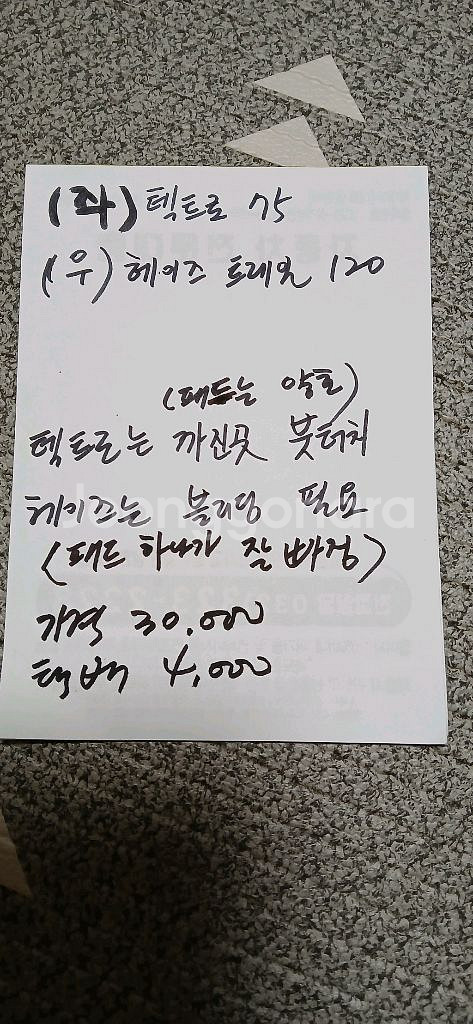 (좌) 텍트로 75
(우) 헤이즈 트레일 120
(패드는 양호)
텍트로는 까진곳 붓터치
헤이즈는 블리딩 필요
joonggonara
(패드 하나가 잘 빠짐)
가격 30,000
택배 4,000